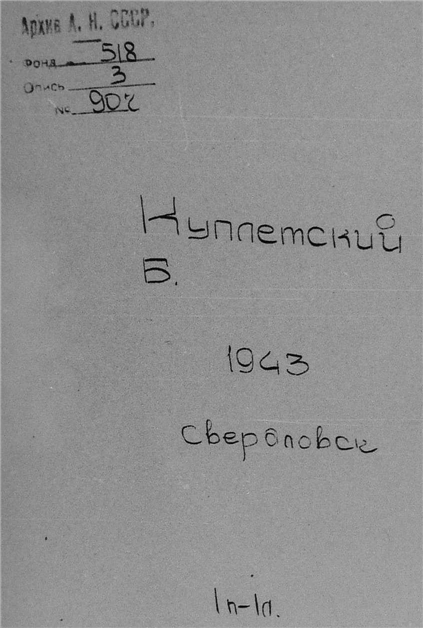 Архив А. Н. СССР.
Фонд 518
Опись 3
№ 907
Куплетский
Б.
1943
Свердловск
1п-1л.